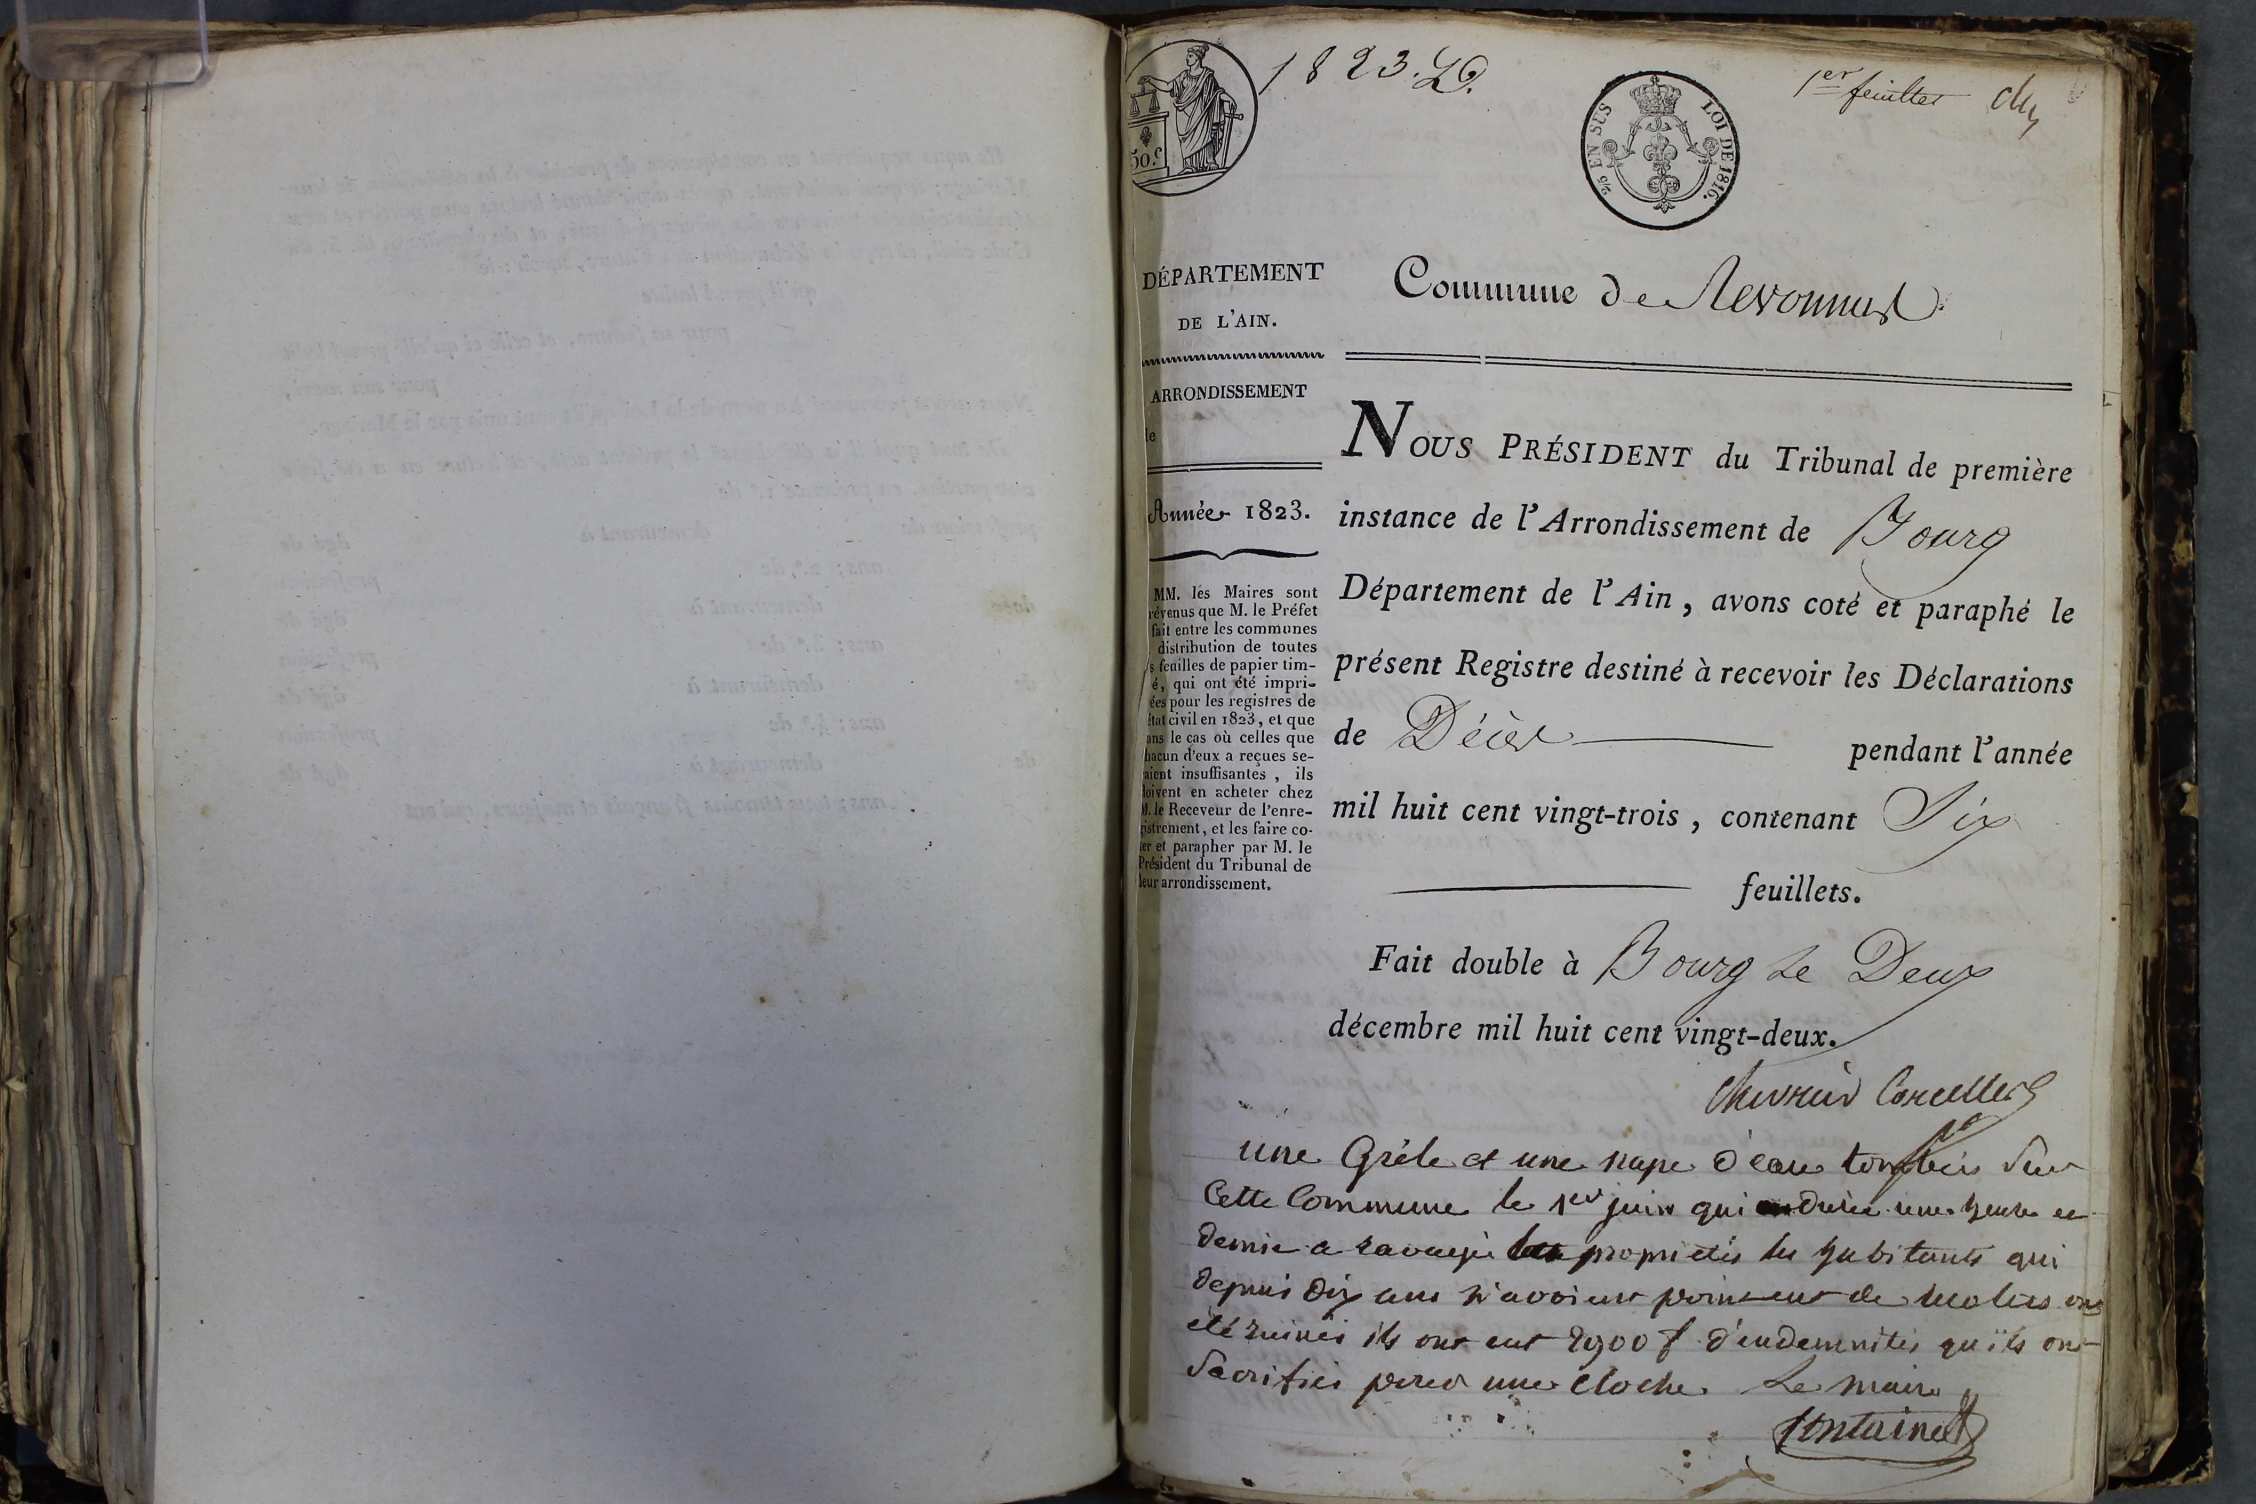 1823. D.
1er feuillet
50 c.
2/5 EN SUS
LOI DE 1816.
DÉPARTEMENT
DE L'AIN.
ARRONDISSEMENT
de
Année 1823.
MM. les Maires sont
révenus que M. le Préfet
fait entre les communes
distribution de toutes
s feuilles de papier tim-
é, qui ont été impri-
ées pour les registres de
état civil en 1823, et que
ans le cas où celles que
hacun d'eux a reçues se-
aient insuffisantes, ils
doivent en acheter chez
M. le Receveur de l'enre-
gistrement, et les faire co-
ter et parapher par M. le
Président du Tribunal de
leur arrondissement.
Commune de Revonnas
NOUS PRÉSIDENT du Tribunal de première
instance de l'Arrondissement de Bourg
Département de l'Ain, avons coté et paraphé le
présent Registre destiné à recevoir les Déclarations
de Décès pendant l'année
mil huit cent vingt-trois, contenant Six
feuillets.
Fait double à Bourg Le Deux
décembre mil huit cent vingt-deux.
Chevrier Corcelles
une Grêle et une nape d'eau tombées sur
Cette Commune le 1er juin qui a durée une heure et
demie a ravagé les propriétés les habitants qui
depuis dix ans n'avoient point eut de recoltes ont
eté ruinés ils ont eut 2900 f d'indemnités qu'ils ont
Sacrifiés pour une Cloche. Le maire
fontaine